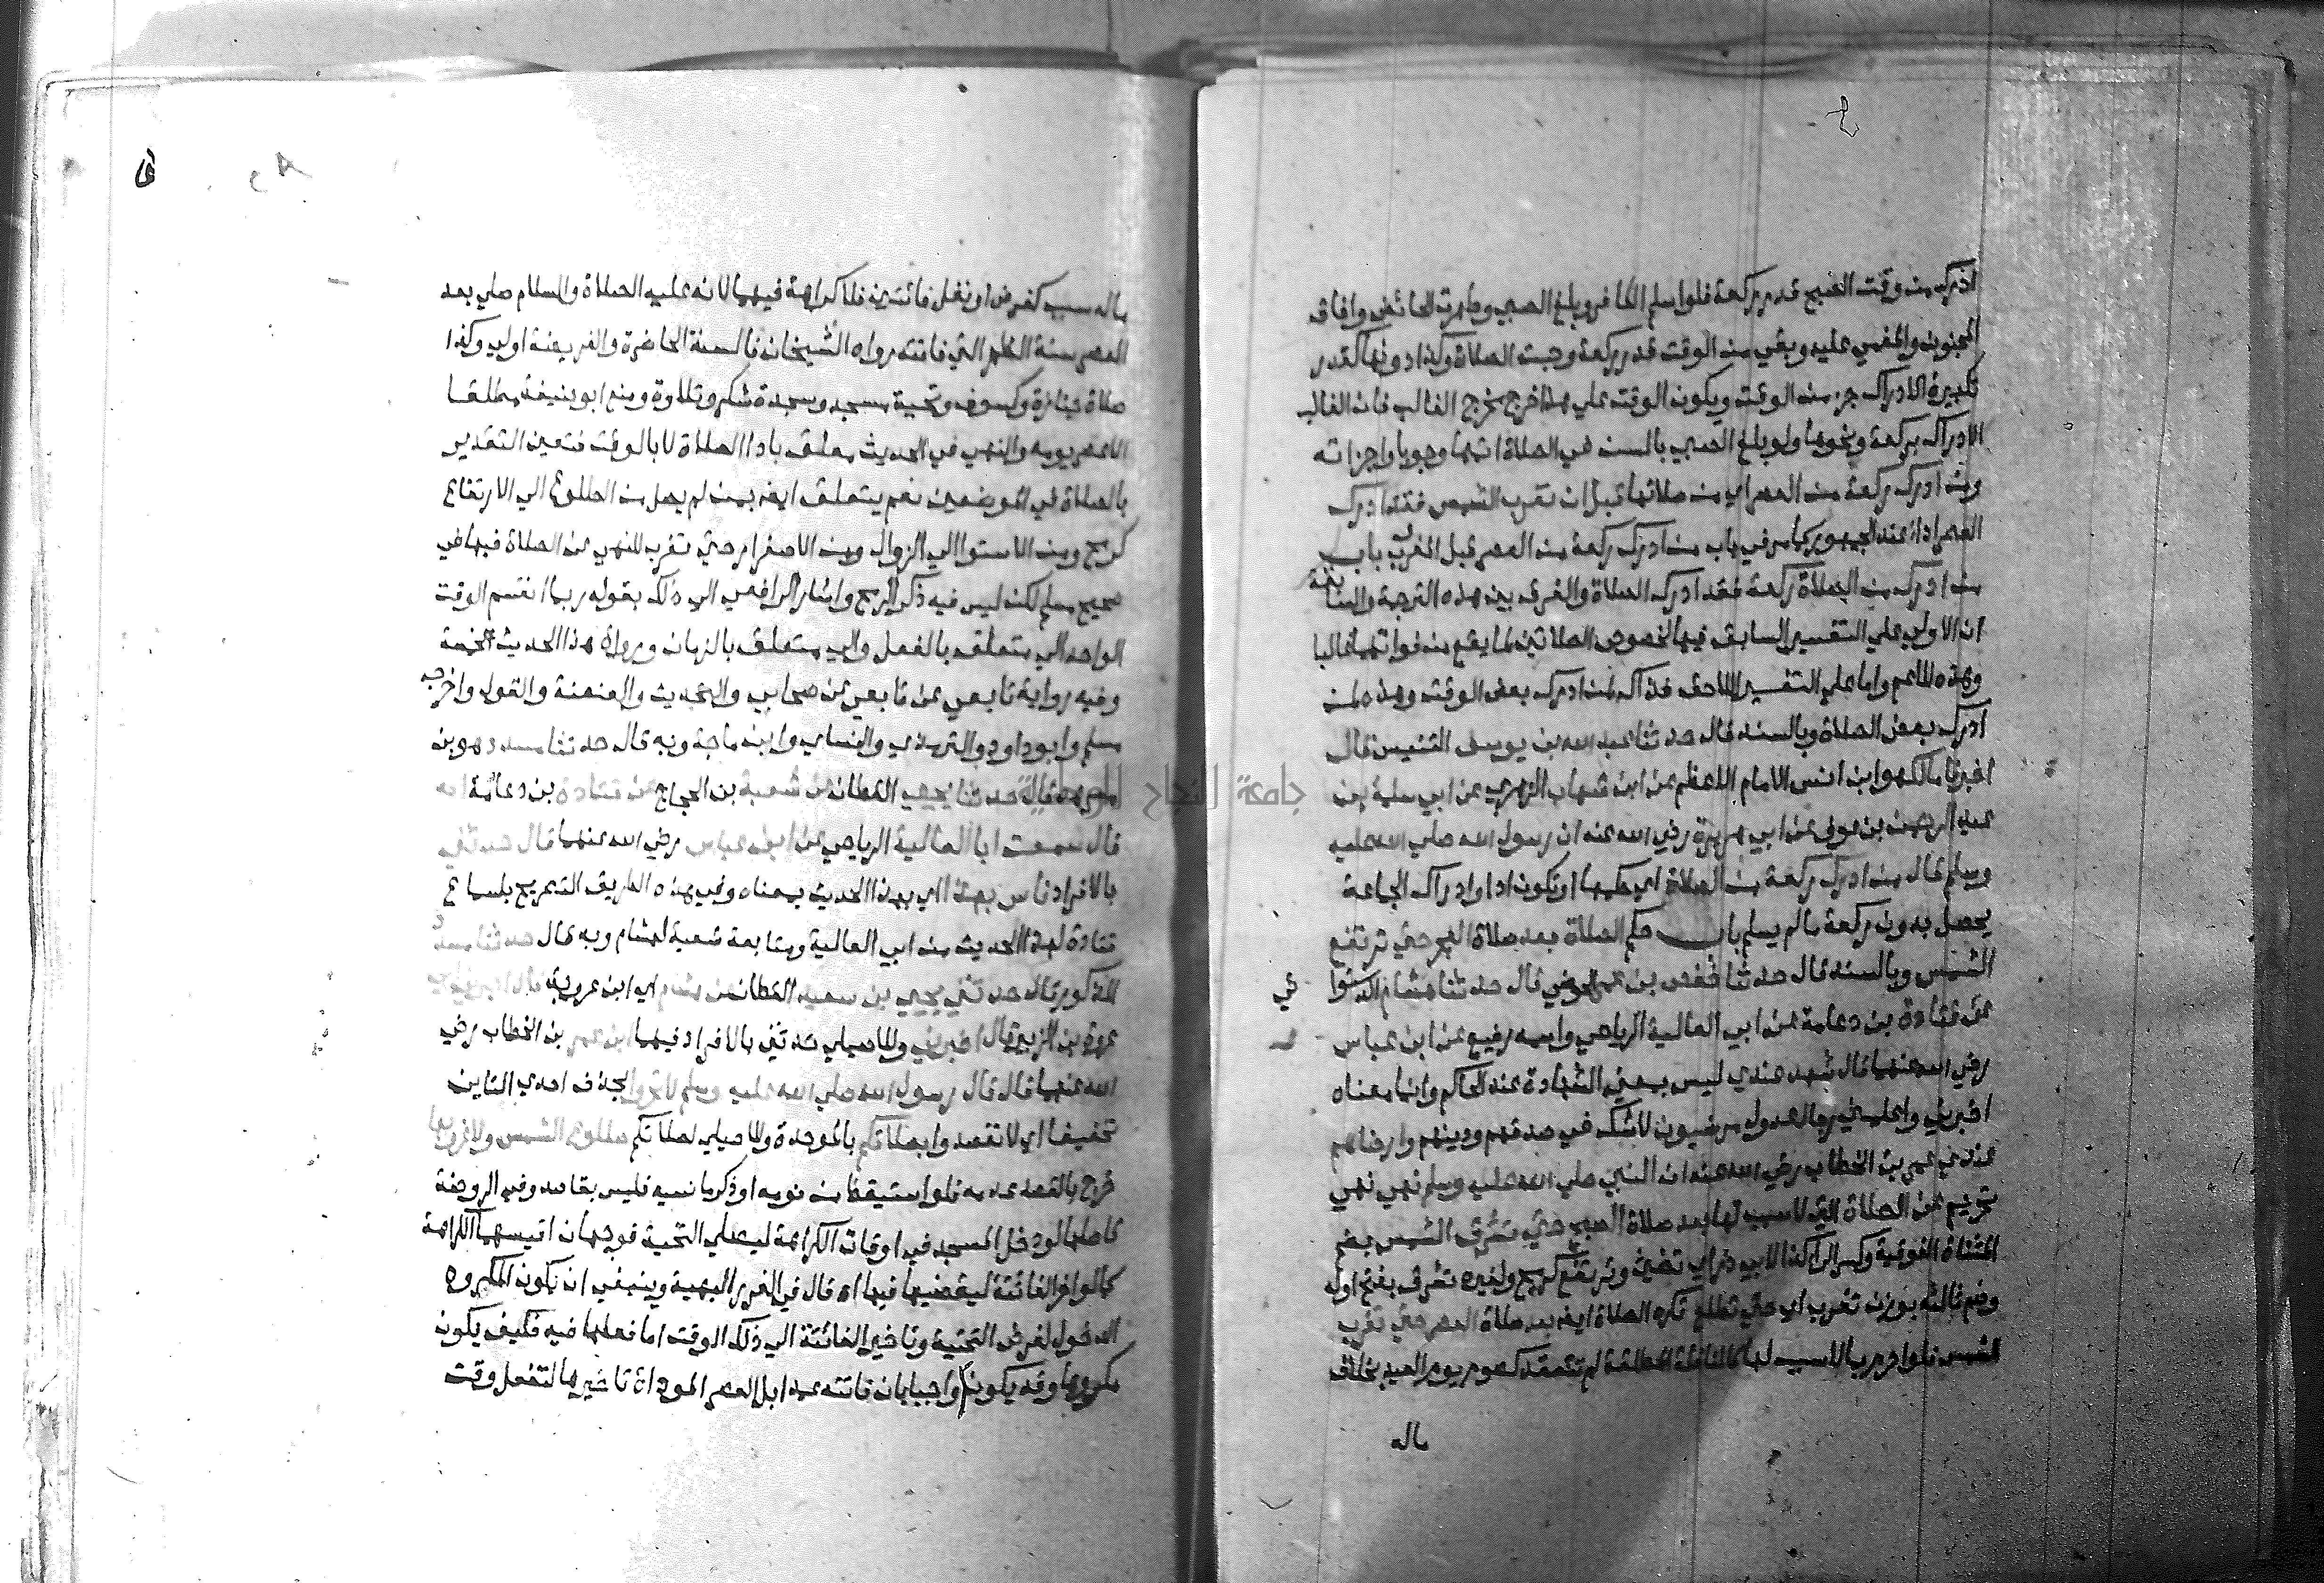 ادرك من وقت الصبح قدر ركعة فلو اسلم الكافر وبلغ الصبي وطهرت الحائض وافاق
المجنون والمغمي عليه وبقي من الوقت قدر ركعة وجبت الصلاة وكذا دونها كقدر
تكبيرة لادراك جزء من الوقت ويكون الوقت علي هذا خرج مخرج الغالب فان الغالب
الادراك بركعة ونحوها ولو بلغ الصبي بالسن في الصلاة اتمها وجوبا واجزاته
ومن ادرك ركعة من العصر اي من صلاتها قبل ان تغرب الشمس فقد ادرك
العصر اداء عند الجمهور كما مر في باب من ادرك ركعة من العصر قبل المغرب باب
من ادرك من الصلاة ركعة فقد ادرك الصلاة والفرق بين هذه الترجمة والسابقة
ان الاولي علي التفسير السابق فيها لخصوص الصلاتين لما يقع من فواتهما غالبا
وهذه للاعم واما علي التفسير اللاحق فذاك لمن ادرك بعض الوقت وهذه لمن
ادرك بعض الصلاة وبالسند قال حدثنا عبد الله بن يوسف التنيسي قال
اخبرنا مالك هو ابن انس الامام الاعظم عن ابن شهاب الزهري عن ابي سلمة بن
عبد الرحمن بن عوف عن ابي هريرة رضي الله عنه ان رسول الله صلي الله عليه
وسلم قال من ادرك ركعة من الصلاة اي حكمها او تكون اداء وادراك الجماعة
يحصل بدون ركعة مالم يسلم باب حكم الصلاة بعد صلاة الفجر حتي ترتفع
الشمس وبالسند قال حدثنا حفص بن عمر الحوضي قال حدثنا هشام الدستوا ئي
عن قتادة بن دعامة عن ابي العالية الرياحي واسمه رفيع عن ابن عباس
رضي الله عنهما قال شهد عندي ليس بمعني الشهادة عند الحاكم وانما معناه
اخبرني واعلمني رجال عدول مرضيون لا شك في صدقهم ودينهم وارضاهم
عندي عمر بن الخطاب رضي الله عنه ان النبي صلي الله عليه وسلم نهي نهي
تحريم عن الصلاة التي لا سبب لها بعد صلاة الصبح حتي تشرق الشمس بضم
المثناة الفوقية وكسر الرا كذا لابي ذر اي تضيئ وترتفع كرمح ولغيره تشرق بفتح اوله
وضم ثالثه بوزن تغرب اي حتي تطلع تكره الصلاة ايضا بعد صلاة العصر حتي تغرب
الشمس فلو احرم بما لا سبب لها كالنافلة المطلقة لم تنعقد كصوم يوم العيد بخلاف
ماله
ماله سبب كفرض او نفل فائتين فلا كراهة فيهما لانه عليه الصلاة والسلام صلي بعد
العصر سنة الظهر التي فاتته رواه الشيخان فالسنة الحاضرة والفريضة اولي وكذا
صلاة جنازة وكسوف وتحية مسجد وسجدة شكر وتلاوة ومنع ابو حنيفة مطلقا
الا عصر يومه والنهي في الحديث معلق باداء الصلاة لا بالوقت فتعين التقدير
بالصلاة في الموضعين نعم يتعلق ايضا بمن لم يصل من الطلوع الي الارتفاع
كرمح ومن الاستوا الي الزوال ومن الاصفرار حتي تغرب للنهي عن الصلاة فيها في
صحيح مسلم لكن ليس فيه ذكر الرمح واشار الرافعي الي ذلك بقوله ربما انقسم الوقت
الواحد الي متعلق بالفعل والي متعلق بالزمان ورواة هذا الحديث الخمسة
وفيه رواية تابعي عن تابعي عن صحابي والتحديث والعنعنة والقول واخرجه
مسلم وابو داود والترمذي والنساي وابن ماجة وبه قال حدثنا مسدد هو بن
مسرهد قال حدثنا يحيي القطان عن شعبة بن الحجاج عن قتادة بن دعامة انه
قال سمعت ابا العالية الرياحي عن ابن عباس رضي الله عنهما قال حدثني
بالافراد ناس بهذا اي بهذا الحديث بمعناه وفي هذه الطريق التصريح بسماع
قتادة لهذا الحديث من ابي العالية ومتابعة شعبة لهشام وبه قال حدثنا مسدد
المذكور قال حدثني يحيي بن سعيد القطان عن هشام اي ابن عروة قال اخبرني ابي
عروة بن الزبير قال اخبرني وللاصيلي حدثني بالافراد فيهما ابن عمر بن الخطاب رضي
الله عنهما قال قال رسول الله صلي الله عليه وسلم لا تحروا بحذف احدي التاين
تخفيفا اي لا تقصدوا بصلاتكم بالموحدة وللاصيلي لصلاتكم طلوع الشمس ولا غروبها
خرج بالقصد عدمه فلو استيقظ من نومه او ذكر ما نسيه فليس بقاصد وفي الروضة
كاصلها لو دخل المسجد في اوقات الكراهة ليصلي التحية فوجهان اقيسهما الكراهة
كما لو اخر الفائتة ليقضيها فيها اه قال في الغرر البهية وينبغي ان يكون المكروه
الدخول لغرض التحية وتاخير الفائتة الي ذلك الوقت اما فعلها فيه فكيف يكون
مكروها وقد يكون واجبا بان فاتته عمدا بل العصر المؤداة تاخيرها لتفعل وقت
جامعة النجاح الوطنية